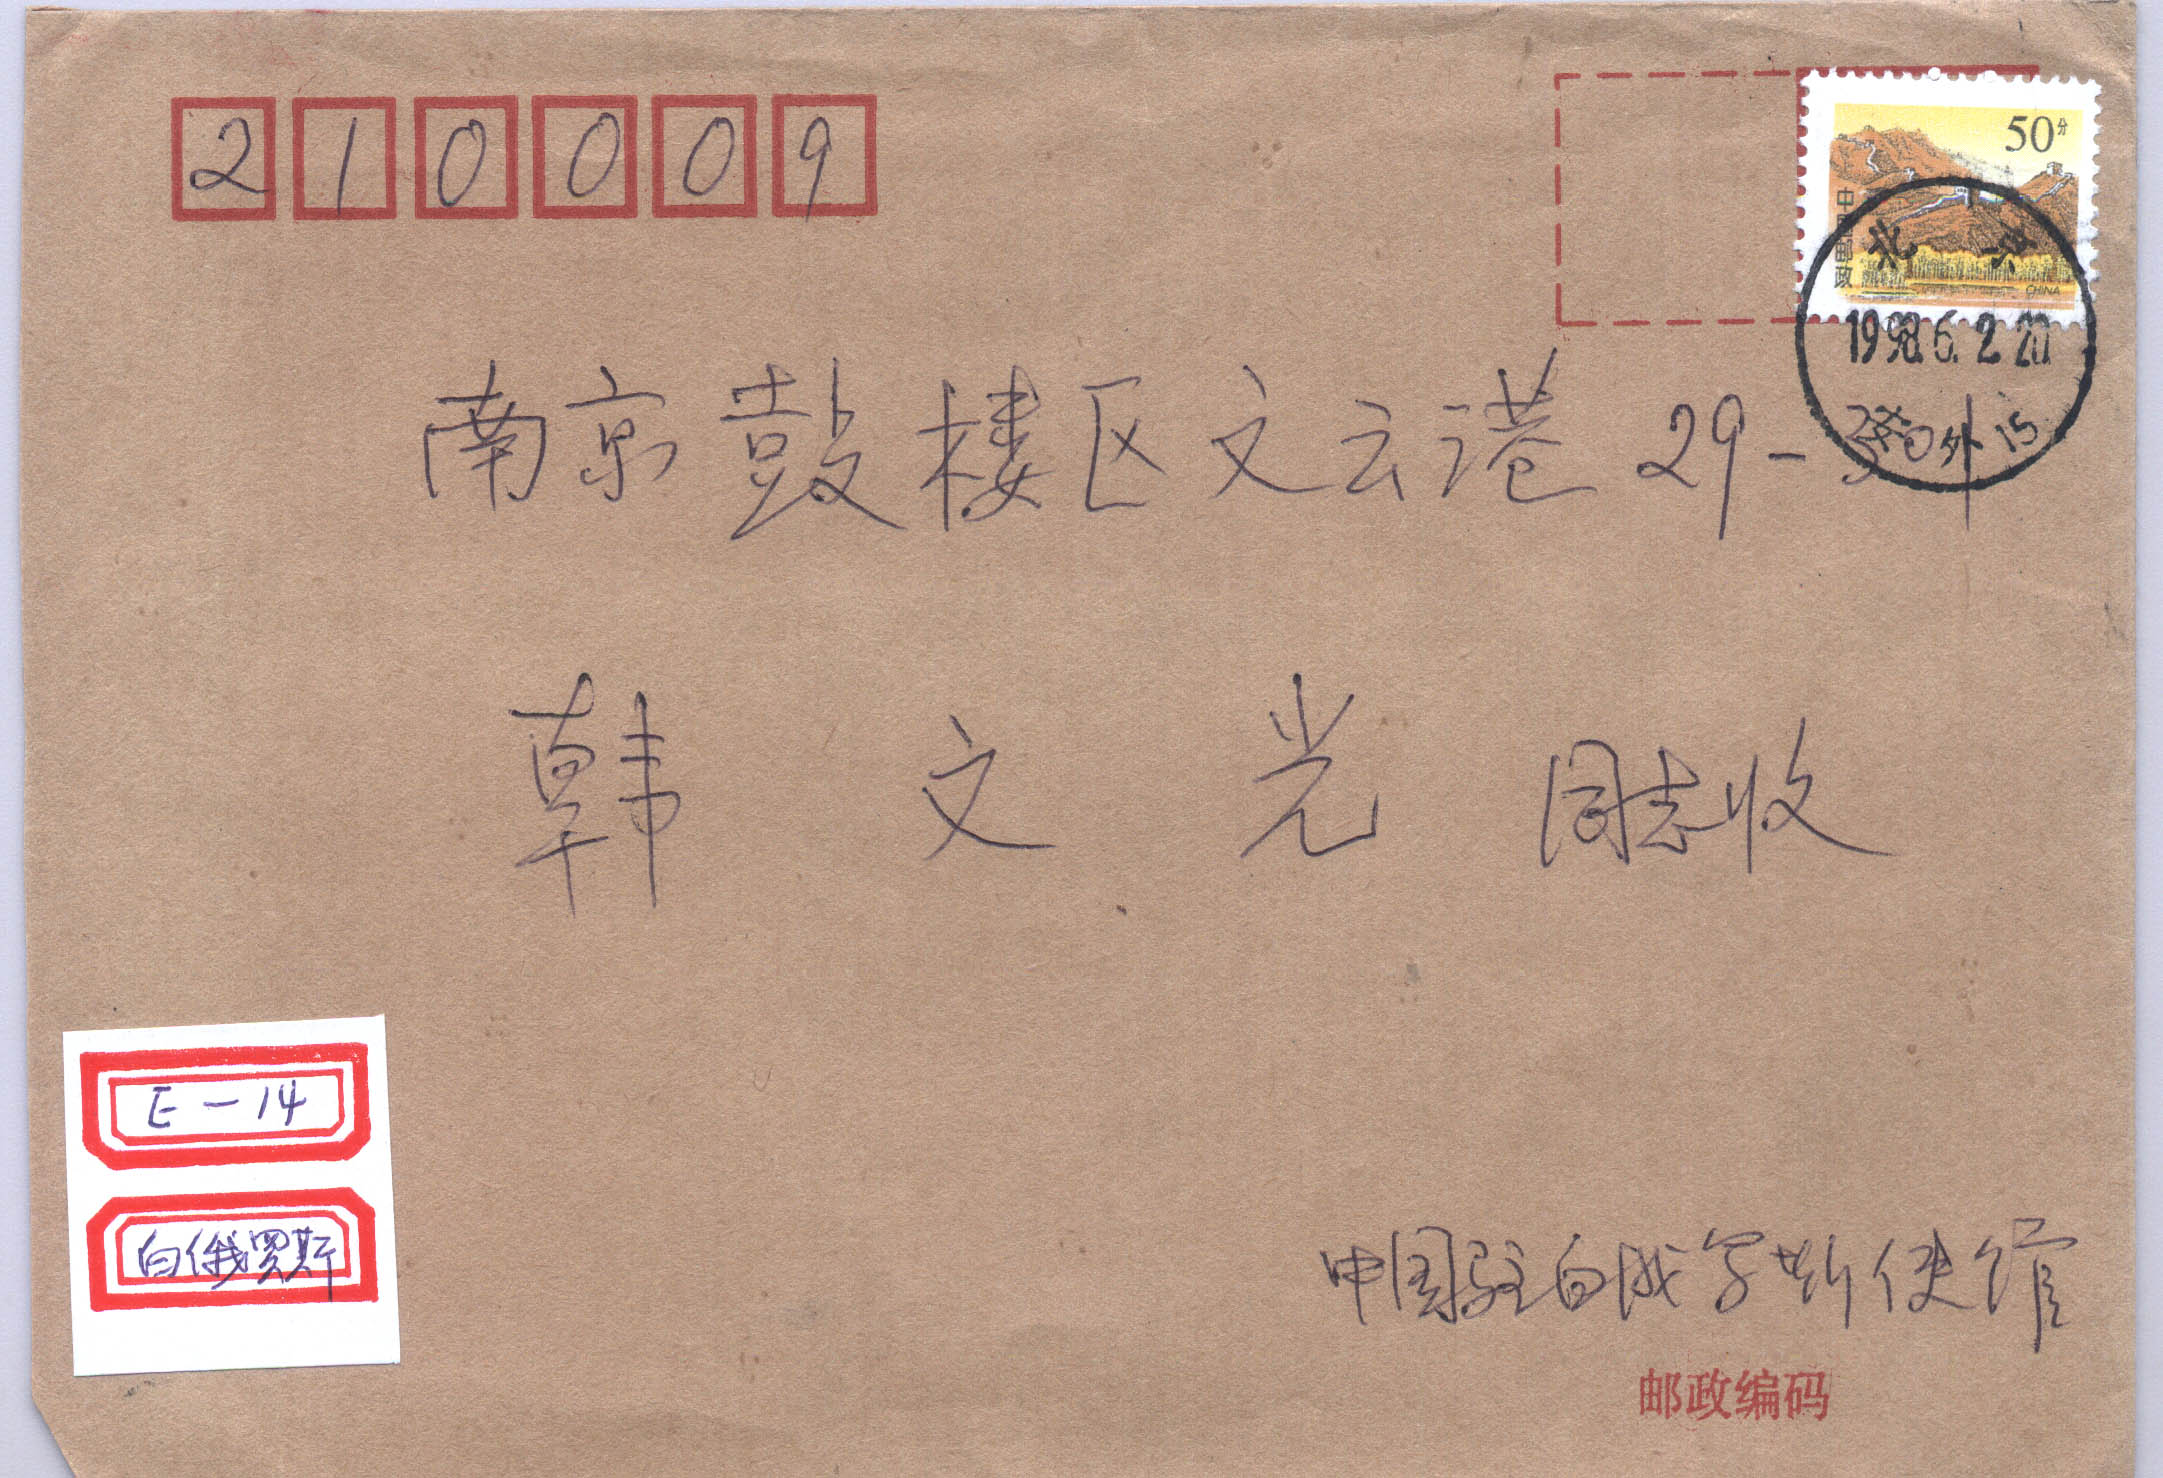 210009
50分
中国邮政
CHINA
北京
1998.6.2.20
外15
南京鼓楼区文云港 29-
韩文光 同志收
E-14
白俄罗斯
中国驻白俄罗斯使馆
邮政编码